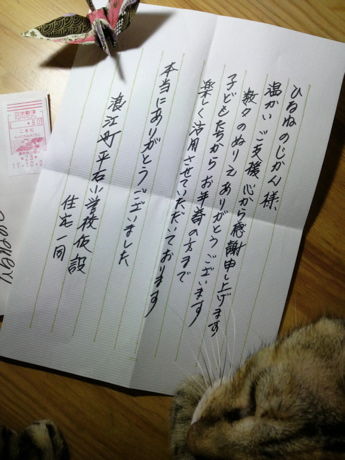 ひるねのじかん様、
温かいご支援心から感謝申し上げます
数々のぬりえありがとうございます
子どもたちからお年寄の方まで
楽しく活用させていただいております
本当にありがとうございました
浪江町平石小学校仮設
住宅一同